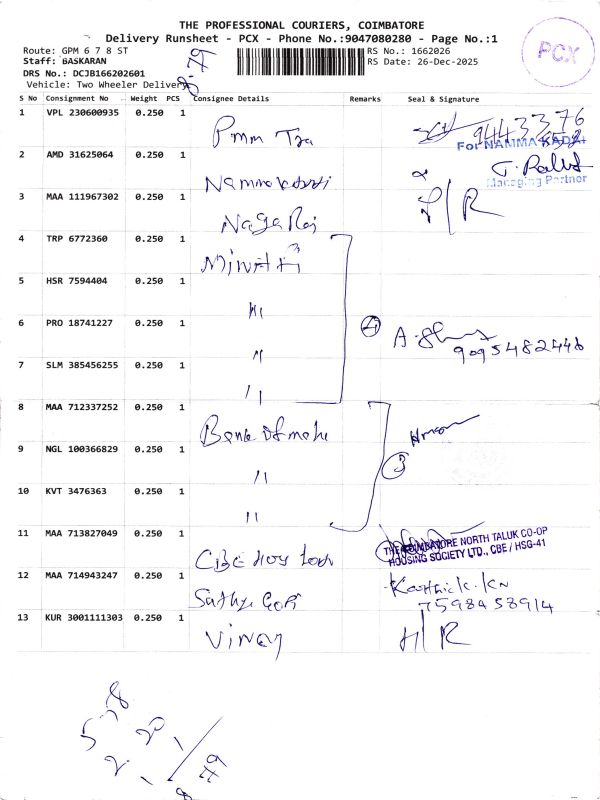 THE PROFESSIONAL COURIERS, COIMBATORE
Delivery Runsheet - PCX - Phone No.:9047080280 - Page No.:1
Route: GPM 6 7 8 ST
RS No.: 1662026
Staff: BASKARAN
RS Date: 26-Dec-2025
DRS No.: DCJB166202601
Vehicle: Two Wheeler Delivery
PCX
S No Consignment No Weight PCS Consignee Details Remarks Seal & Signature
1 VPL 230600935 0.250 1 Pmm Tra 9443376
For NAMMA KADAI
2 AMD 31625064 0.250 1 Nammakadai
Managing Partner
3 MAA 111967302 0.250 1 NagaRaj R
4 TRP 6772360 0.250 1
5 HSR 7594404 0.250 1 "
6 PRO 18741227 0.250 1 " 4 9095482446
7 SLM 385456255 0.250 1 "
8 MAA 712337252 0.250 1 Bank of mahe
9 NGL 100366829 0.250 1 " 3
10 KVT 3476363 0.250 1 "
11 MAA 713827049 0.250 1 CBE
THE COIMBATORE NORTH TALUK CO-OP
HOUSING SOCIETY LTD., CBE / HSG-41
12 MAA 714943247 0.250 1 Sathya Gopi Karthick.KN
7598458914
13 KUR 3001111303 0.250 1 Vinay H/R